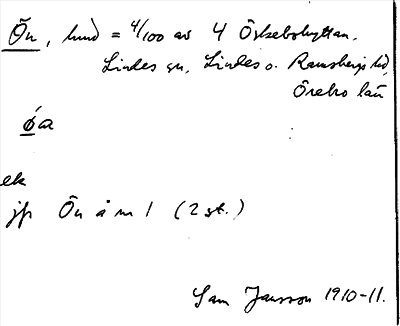 Ön, hmd = 4/100 av 4 Öskebohyttan,
Lindes sn, Lindes o. Ramsbergs hd,
Örebro län
øa
ek
jfr Ön å m 1 (2 st.)
Sam Jansson 1910-11.